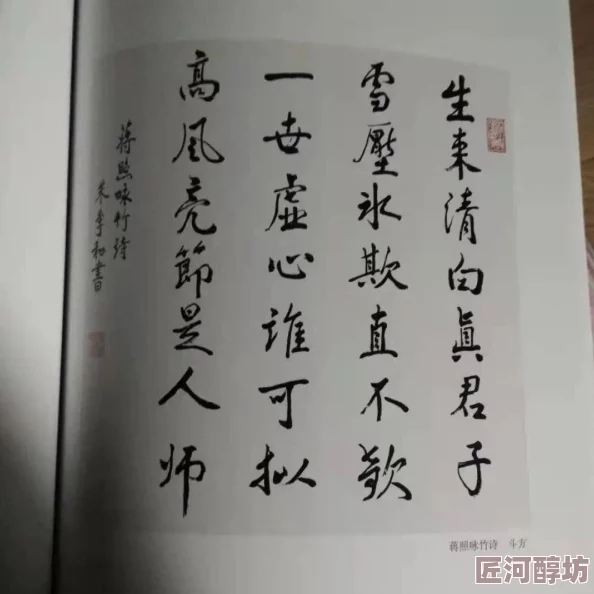 生来清白眞君子
雪壓冰欺直不欹
一世虛心誰可拟
高風亮節是人师
蒋照咏竹诗
書
蒋照咏竹诗 斗方
匠河醇坊